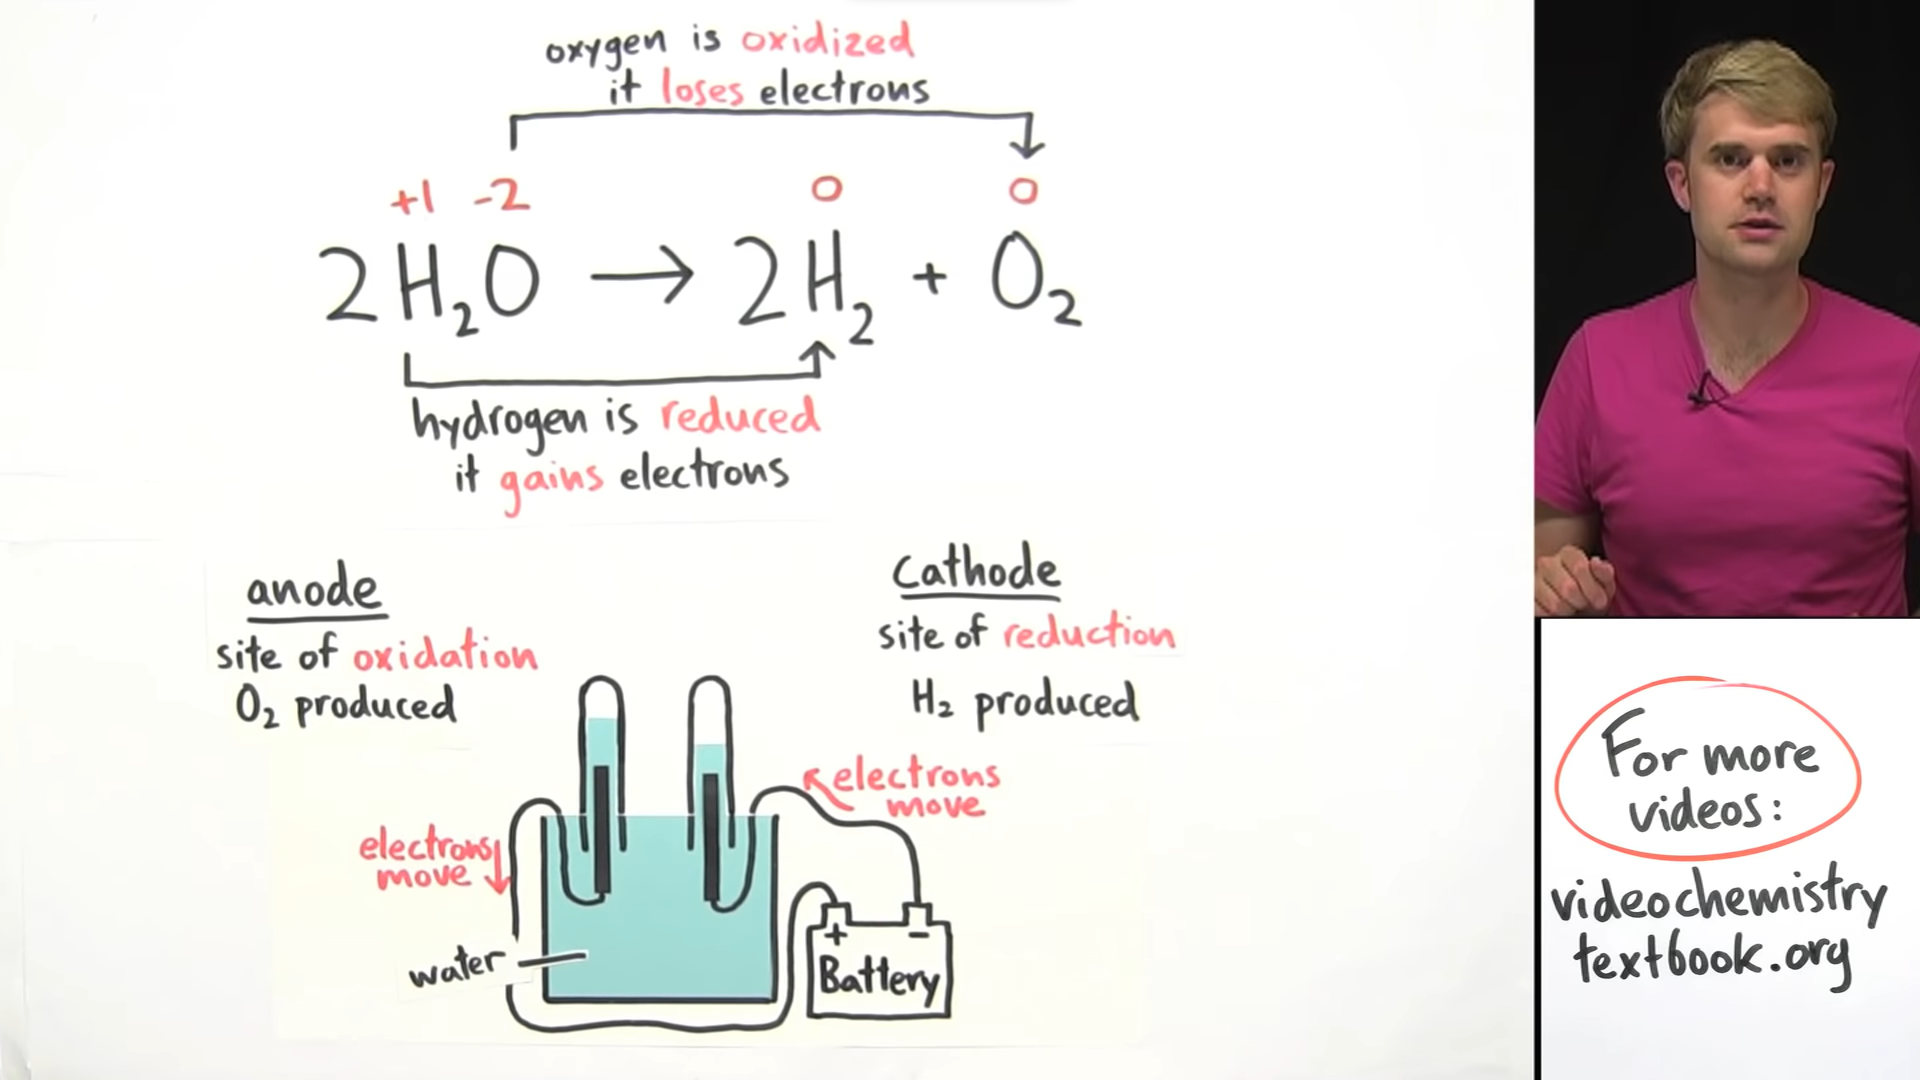 oxygen is oxidized
it loses electrons
+1 -2 0 0
2H₂O → 2H₂ + O₂
hydrogen is reduced
it gains electrons
anode
site of oxidation
O₂ produced
Cathode
site of reduction
H₂ produced
electrons
move
electrons
move
water
+ −
Battery
For more
videos:
videochemistry
textbook.org